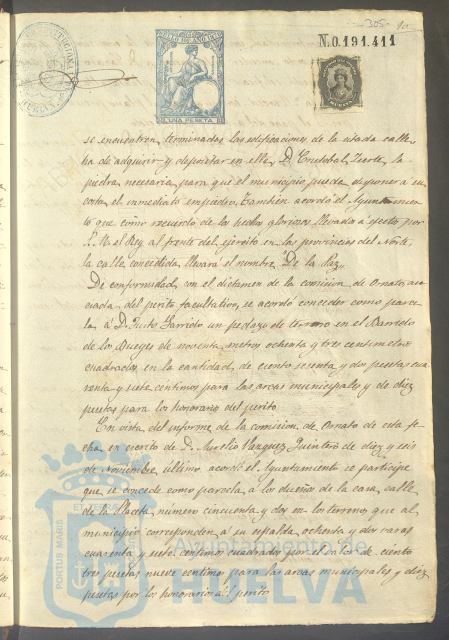 305
N.0.191.411
SELLO 11º AÑO 1876
UNA PESETA
se encuentren terminadas las edificaciones de la citada calle,
ha de adquirir y depositar en ella, D. Cristobal Iriarte, la
piedra necesaria para que el municipio pueda disponer á su
costa el inmediato empiedro. Tambien acordó el Ayuntamien
to que como recuerdo de los hechos gloriosos llevados á efecto por
S. M. el Rey al frente del ejército en las provincias del Norte,
la calle concedida llevará el nombre "De la Paz"
De conformidad con el dictámen de la comision de Ornato, aso
ciada del perito facultativo, se acordó conceder como parce
la á D. Justo Garrido un pedazo de terreno en el Barrido
de los Bueyes de noventa metros ochenta y tres centímetros
cuadrados en la cantidad de ciento sesenta y dos pesetas cua
renta y siete centimos para las arcas municipales y de diez
pesetas para los honorarios del perito
En vista del informe de la comision de Ornato de esta fe
cha, en escrito de D. Aurelio Vazquez Quintero de diez y seis
de Noviembre último acordó el Ayuntamiento se participe
que se concede como parcela á los dueños de la casa, calle
de la Placeta, número cincuenta y dos en los terrenos que al
municipio corresponden á su espalda ochenta y dos varas
cuarenta y siete centimos cuadrados por el valor de ciento
tres pesetas nueve centimos para las arcas municipales y diez
pesetas por los honorarios al perito
PORTUS MARIS
Ayuntamiento de
HUELVA